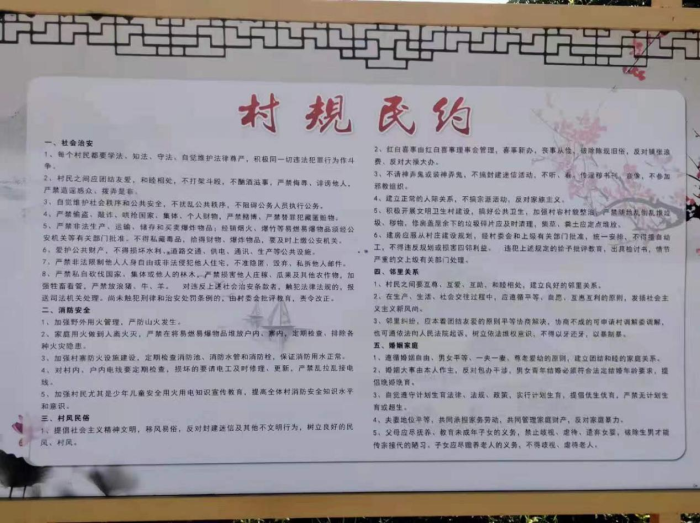 村规民约
一、社会治安
1、每个村民都要学法、知法、守法、自觉维护法律尊严，积极同一切违法犯罪行为作斗
争。
2、村民之间应团结友爱、和睦相处，不打架斗殴，不酗酒滋事，严禁侮辱、诽谤他人，
严禁造谣惑众、搬弄是非。
3、自觉维护社会秩序和公共安全，不扰乱公共秩序，不阻碍公务人员执行公务。
4、严禁偷盗、敲诈、哄抢国家、集体、个人财物，严禁赌博，严禁替罪犯藏匿赃物。
5、严禁非法生产、运输、储存和买卖爆炸物品；经销烟火、爆竹等易燃易爆物品须经公
安机关等有关部门批准。不得私藏毒品，拾得财物、爆炸物品，要及时上缴公安机关。
6、爱护公共财产，不得损坏水利、道路交通、供电、通讯、生产等公共设施。
7、严禁非法限制他人人身自由或非法侵犯他人住宅，不准隐匿、毁弃、私拆他人邮件。
8、严禁私自砍伐国家、集体或他人的林木，严禁损害他人庄稼、瓜果及其他农作物，加
强牲畜看管，严禁放浪猪、牛、羊。 对违反上述社会治安条款者，触犯法律法规的，报
送司法机关处理，尚未触犯刑律和治安处罚条例的，由村委会批评教育，责令改正。
二、消防安全
1、加强野外用火管理，严防山火发生。
2、家庭用火做到人离火灭，严禁在将易燃易爆物品堆放户内、寨内，定期检查，目除各
种火灾隐患。
3、加强村寨防火设施建设，定期检查消防池、消防水管和消防栓，保证消防用水正常。
4、对村内、户内电线要定期检查，损坏的要请电工及时修理、更新，严禁乱拉乱接电
线。
5、加强村民尤其是少年儿童安全用火用电知识宣传教育，提高全体村消防安全知识水平
和意识。
三、村风民俗
1、提倡社会主义精神文明，移风易俗，反对封建迷信及其他不文明行为，树立良好的民
风、村风。
2、红白喜事由红白喜事理事会管理，喜事新办，丧事从俭，破除陈规旧俗，反对铺张浪
费、反对大操大办。
3、不请神弄鬼或装神弄鬼，不搞封建迷信活动，不听、看、传淫秽书刊、音像，不参加
邪教组织。
4、建立正常的人际关系，不搞宗派活动，反对家族主义。
5、积极开展文明卫生村建设，搞好公共卫生，加强村容村貌整治，严禁随地乱倒乱堆垃
圾、秽物，修房盖屋余下的垃圾碎片应及时清理，柴草、粪土应定点堆放。
6、建房应服从村庄建设规划，经村委会和上级有关部门批准，统一安排，不得擅自动
工，不得违反规划或损害四邻利益。 违犯上述规定的给予批评教育，出具检讨书，情节
严重的交上级有关部门处理。
四、邻里关系
1、村民之间要互尊、互爱、互助，和睦相处，建立良好的邻里关系。
2、在生产、生活、社会交往过程中，应遵循平等、自愿、互惠互利的原则，发扬社会主
义主义新风尚。
3、邻里纠纷，应本着团结友爱的原则平等协商解决，协商不成的可申请村调解委调解，
也可通法依向人民法院起诉，树立依法维权意识，不得以牙还牙，以暴制暴。
五、婚姻家庭
1、遵循婚姻自由、男女平等、一夫一妻、尊老爱幼的原则，建立团结和睦的家庭关系。
2、婚姻大事由本人作主，反对包办干涉，男女青年结婚必须符合法定结婚年龄要求，提
倡晚婚晚育。
3、自觉遵守计划生育法律、法规、政策，实行计划生育，提倡优生优育，严禁无计划生
育或超生。
4、夫妻地位平等，共同承担家务劳动，共同管理家庭财产，反对家庭暴力。
5、父母应尽抚养、教育未成年子女的义务，禁止歧视、虐待、遗弃女婴，破除生男才能
传宗接代的陋习。子女应尽赡养老人的义务，不得歧视、虐待老人。